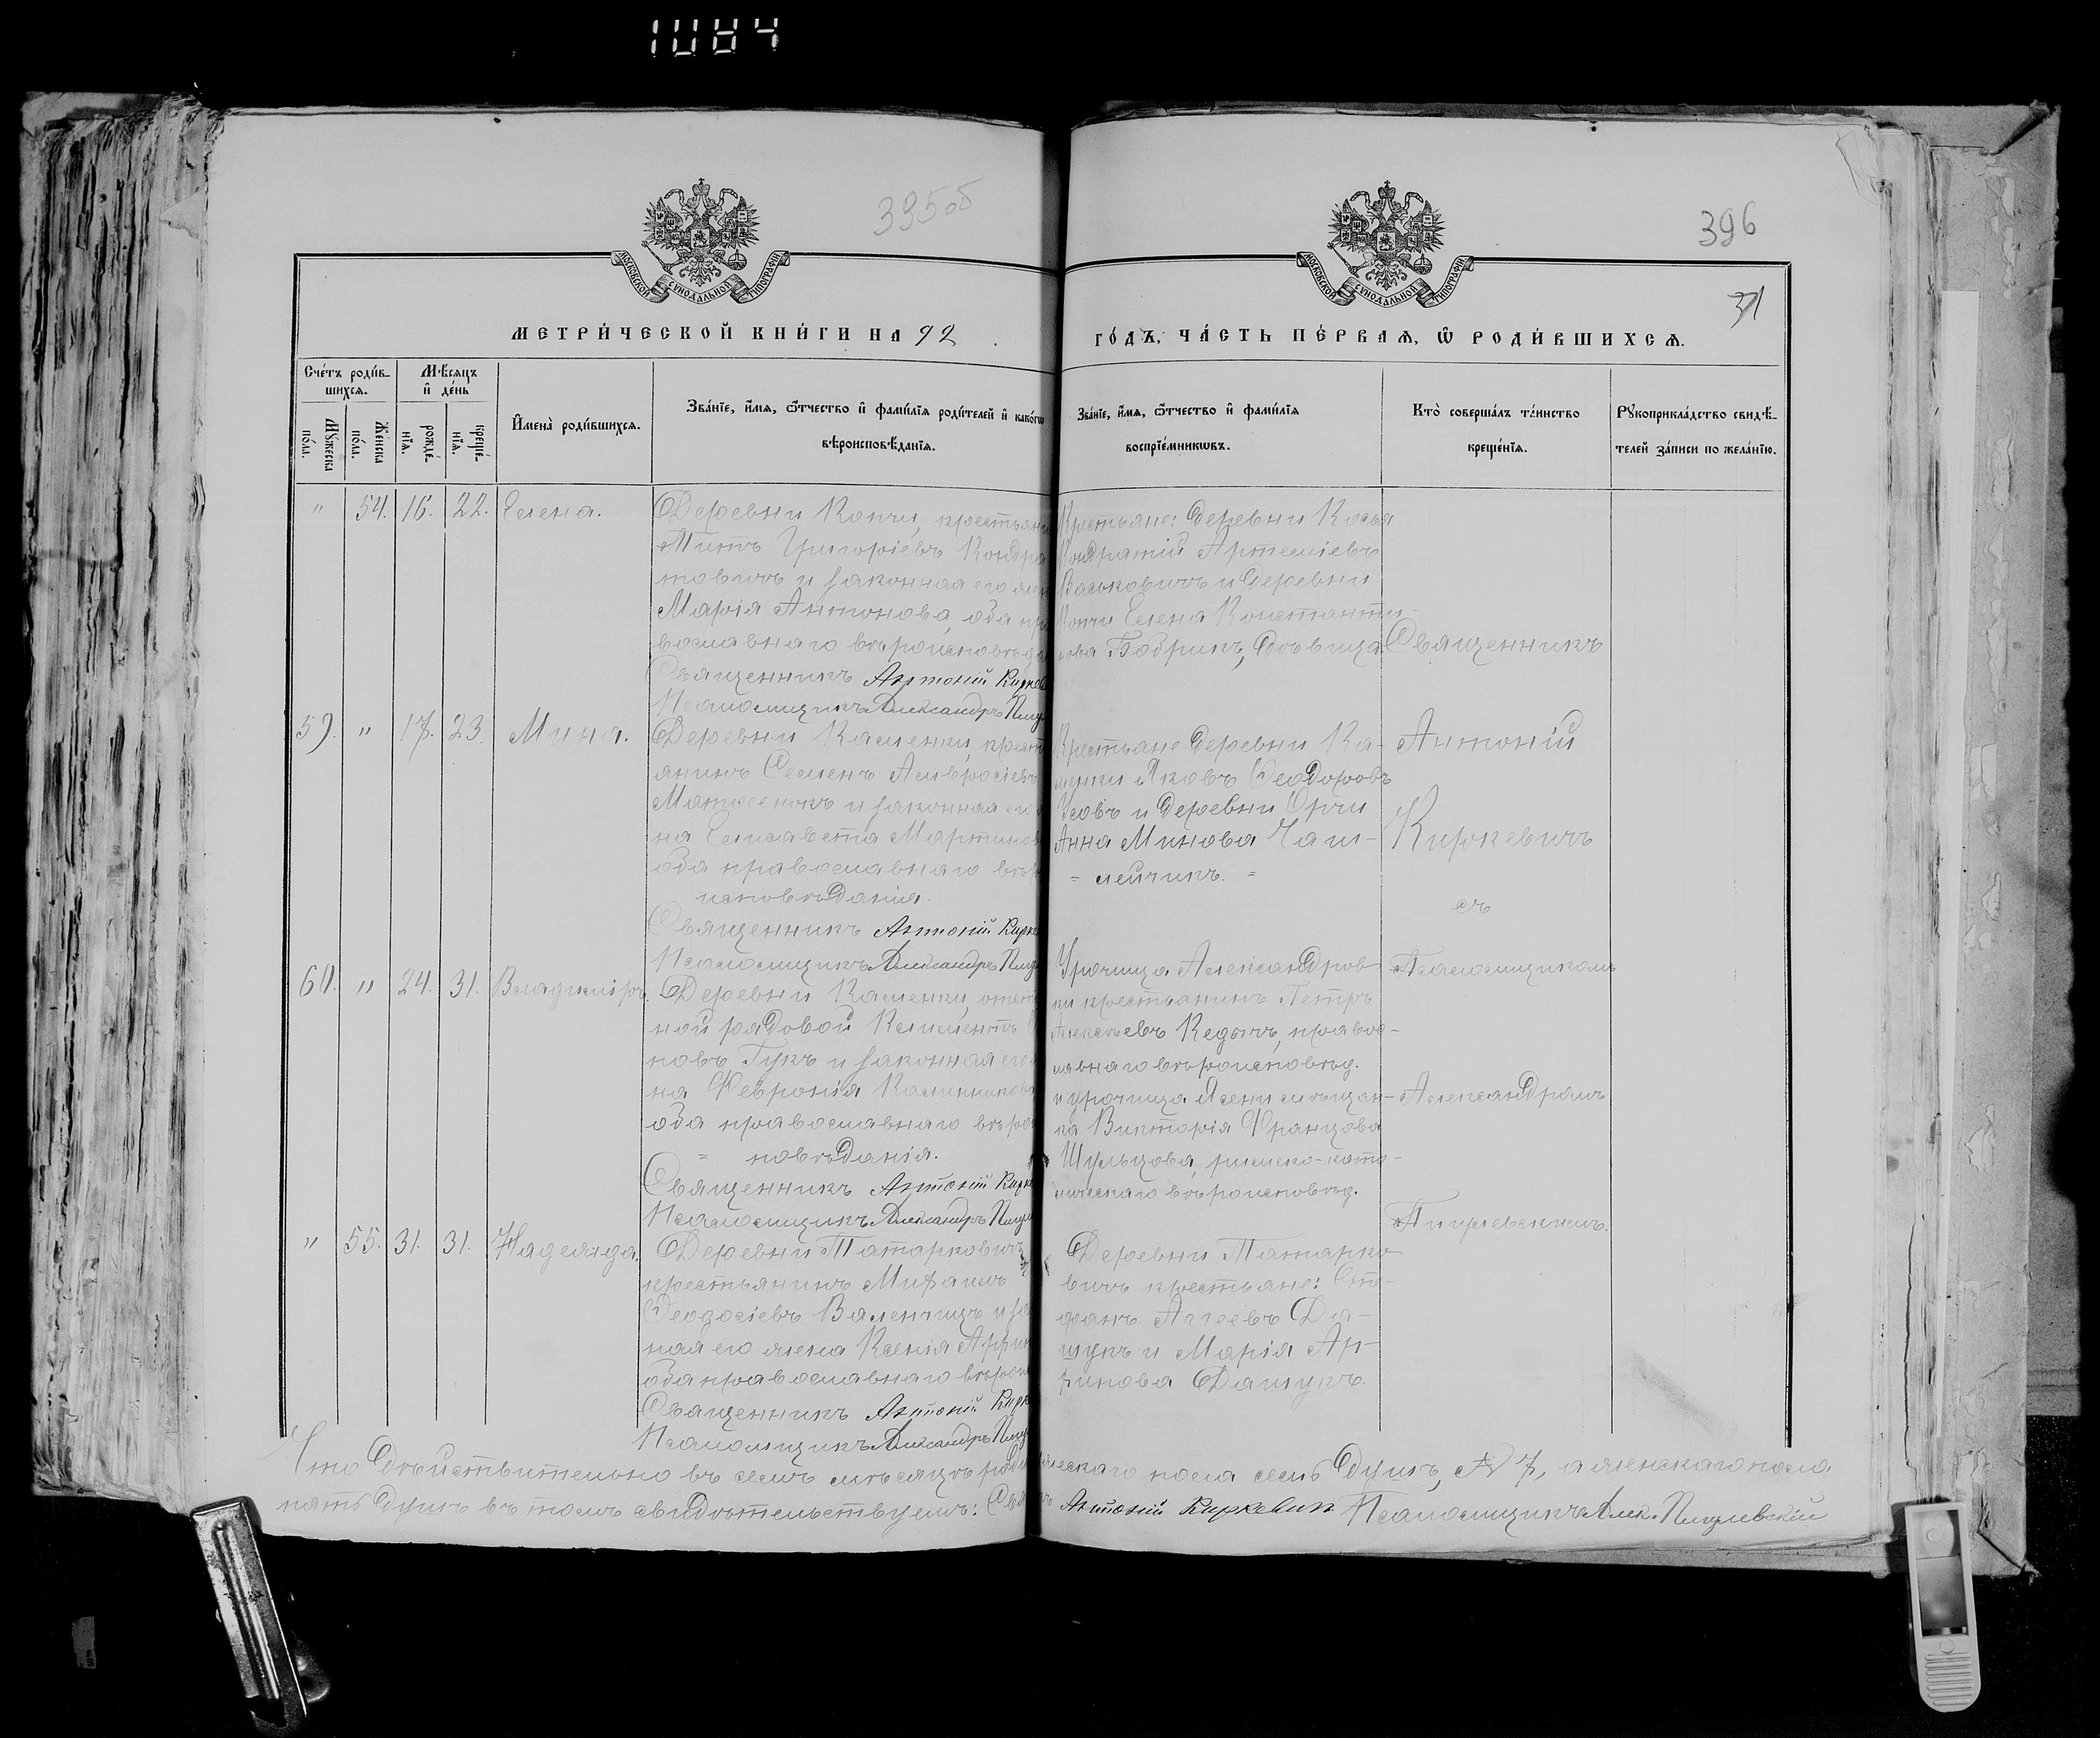 1084
395об
396
31
МОСКОВСКОЙ СѴНОДАЛЬНОЙ ТИПОГРАФІИ
МОСКОВСКОЙ СѴНОДАЛЬНОЙ ТИПОГРАФІИ
МЕТРИ́ЧЕСКОЙ КНИ́ГИ НА 92
ГО́ДЪ, ЧА́СТЬ ПЕ́РВАѦ, Ѽ РОДИ́ВШИХСѦ.
Сче́тъ роди́в-
шихся.
Мꙋжеска по́ла.
Женска по́ла.
Мѣсяцъ
и҆ де́нь
рожде́-
нїя.
креще́-
нїя.
И҆мена̀ роди́вшихся.
Зва́нїе, и҆́мя, ѻ҆́тчество и҆ фами́лїя роди́телей и҆ како́гѡ
вѣроисповѣ́данїя.
Зва́нїе, и҆́мя, ѻ҆́тчество и҆ фами́лїя
воспрїе́мникѡвъ.
Кто̀ соверша́лъ та́инство
креще́нїя.
Рꙋкоприкла́дство свидѣ́-
телей за́писи по жела́нїю.
" 54. 16. 22. Елена.
Деревни Кончи, крестьяни
Титъ Григоріевъ Кондра
товичъ и законная его же
Марія Антонова, оба пра
вославнаго вѣроисповѣда
Священникъ Антоній Кирке
Псаломщикъ Александръ
Крестьяне: деревни
Кондратій Артеміевъ
Васьковичъ и деревни
Кончи Елена Константи-
нова Бобрикъ, дѣвица
59. " 17. 23. Мина.
Деревни Каменки, крест
янинъ Семенъ Амвросіевъ
и законная его
на Елисавета Мартинов
оба православнаго вѣро
исповѣданія.
Священникъ Антоній Кирке
Псаломщикъ Александръ
Крестьяне деревни Ка-
менки Яковъ Ѳеодоровъ
Усовъ и деревни
Анна Минова Чаш-
= лейчикъ. =
60. " 24. 31. Владиміръ.
Деревни Каменки,
ной рядовой Климентъ
новъ Гукъ и законная его
на Февронія Калинников
оба православнаго вѣрои
= повѣданія.
Священникъ Антоній Кирке
Псаломщикъ Александръ
Урочища Александров-
ки крестьянинъ Петръ
Алексѣевъ Кедычъ, правос-
лавнаго вѣроисповѣд.
и урочища Ясени мѣщан-
ка Викторія Францова
Шульцова, римско-като-
лическаго вѣроисповѣд.
" 55. 31. 31. Надежда.
Деревни Татарковичъ
крестьянинъ Михаилъ
Ѳеодосіевъ Валенчицъ и за
ная его жена Ксенія
оба православнаго вѣрои
Священникъ Антоній Кирк
Псаломщикъ Александръ
Деревни Татарко-
вичъ крестьяне: Сте-
фанъ Аггеевъ Да-
шукъ и Марія Ар-
Дашукъ.
Священникъ
Антоній
Киркевичъ
съ
Псаломщикомъ
Александромъ
Что дѣйствительно въ семъ мѣсяцѣ роди ескаго пола семь душъ, № 7, а женскаго пола
пять душъ въ томъ свидѣтельствуемъ: Антоній Киркевичъ Псаломщикъ Алек.